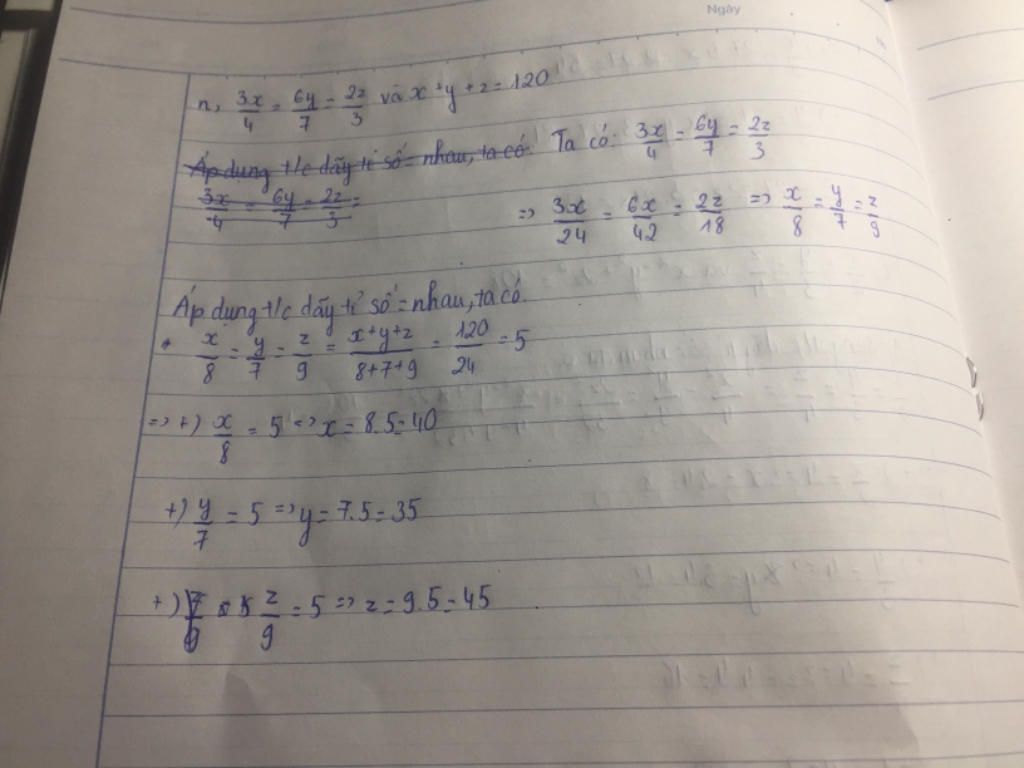 Ngày
n, 3x/4 = 6y/7 = 2z/3 và x + y + z = 120
Áp dụng t/c dãy tỉ số = nhau, ta có: Ta có: 3x/4 = 6y/7 = 2z/3
3x/4 = 6y/7 = 2z/3 =
=> 3x/24 = 6x/42 = 2z/18 => x/8 = y/7 = z/9
Áp dụng t/c dãy tỉ số = nhau, ta có.
x/8 = y/7 = z/9 = x+y+z/8+7+9 = 120/24 = 5
=> +) x/8 = 5 => x = 8.5 = 40
+) y/7 = 5 => y = 7.5 = 35
+) z/9 = 5 => z = 9.5 = 45